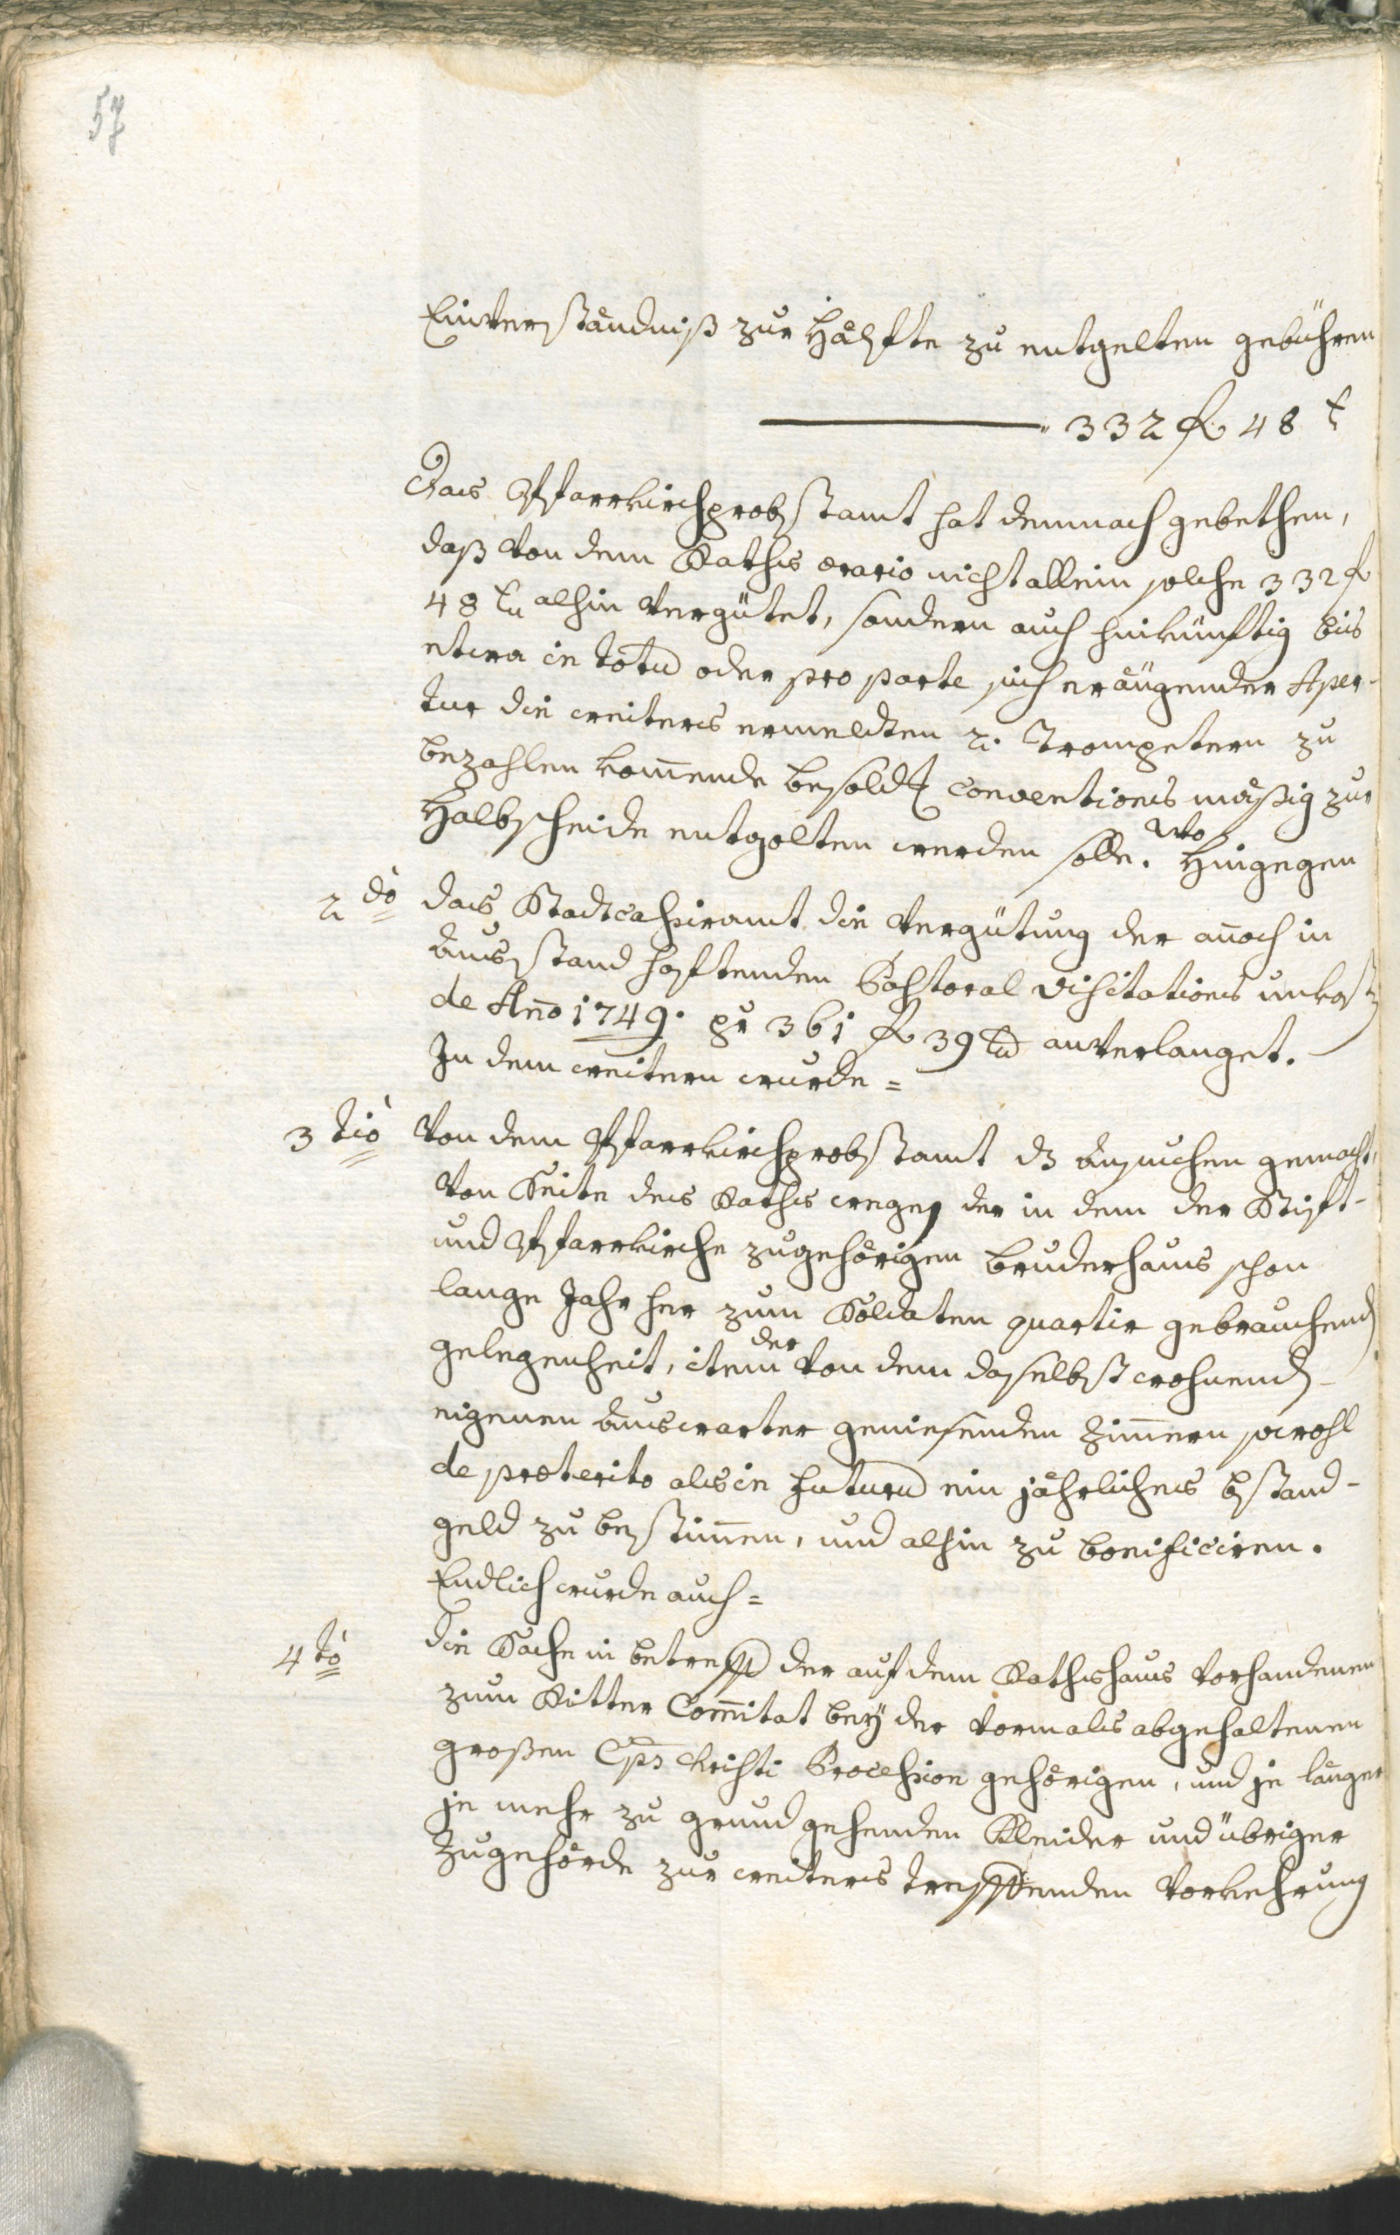 57
Einverständniß zur Hälfte zu entgelten gebühren
332 f 48 x
Das Pfarrkirchprobstamt hat demnach gebethen,
daß von dem Raths ærario nicht allein solche 332 f
48 xr alhin vergütet, sondern auch hinkünftig bis
etwa in totũ oder pro parte sich eräugender Aper-
tur die weiters ermeldten 2. Trompetern zu
bezahlen kom̄ende besold[ung] conventions mäßig zur
Halbscheide entgolten werden solle. Wo Hingegen
2 dò das Stadtcassieramt die vergütung der an̄och in
Ausstand haftenden Pastoral Visitations unkost
de An̄o 1749. pr 361 f 39 xr anverlanget.
In dem weitern wurde =
3 tiò Von dem Pfarrkirchprobstamt dz Ansuchen gemacht,
von Seite des Raths wegen der in dem der Stift-
und Pfarrkirche zugehörigen Bruderhaus schon
lange Jahr her zum Soldaten quartir gebrauchend
gelegenheit, item der von dem daselbst wohnend-
eigenen Auswarter geniesenden Zim̄ern sowohl
de præterito als in futurũ ein jährliches bstand-
geld zu bestim̄en, und alhin zu bonificiren.
Endlich wurde auch =
4 tò die Sache in betreff der auf dem Rathshaus vorhandenen
zum Ritter Com̄itat bey der vormals abgehaltenen
großen Cps Christi Procession gehörigen, und je länger
je mehr zu grund gehenden Kleider und übriger
Zugehörde zur weiters treffenden Vorkehrung